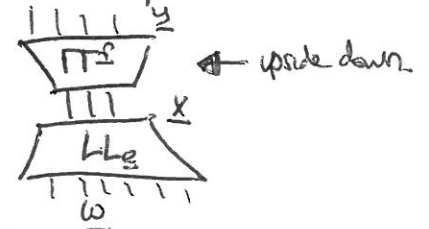 y
πf ← upside down
x
LLe
ω